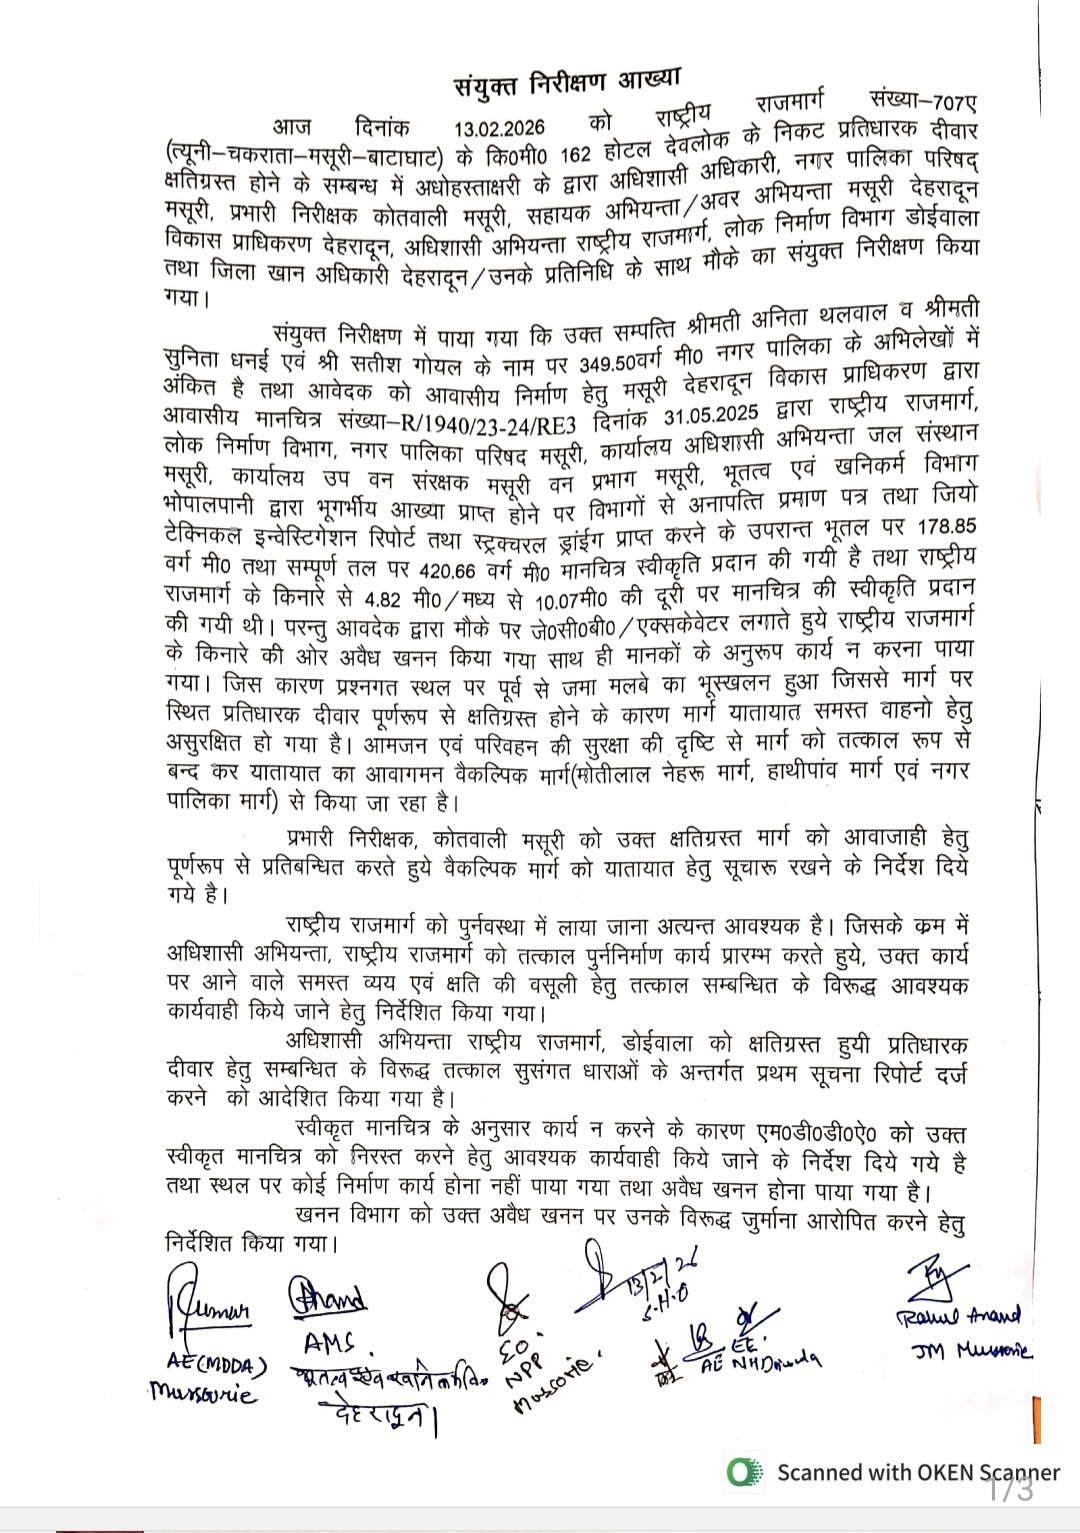 संयुक्त निरीक्षण आख्या
आज दिनांक 13.02.2026 को राष्ट्रीय राजमार्ग संख्या–707ए
(त्यूनी–चकराता–मसूरी–बाटाघाट) के कि०मी० 162 होटल देवलोक के निकट प्रतिधारक दीवार
क्षतिग्रस्त होने के सम्बन्ध में अधोहस्ताक्षरी के द्वारा अधिशासी अधिकारी, नगर पालिका परिषद्
मसूरी, प्रभारी निरीक्षक कोतवाली मसूरी, सहायक अभियन्ता/अवर अभियन्ता मसूरी देहरादून
विकास प्राधिकरण देहरादून, अधिशासी अभियन्ता राष्ट्रीय राजमार्ग, लोक निर्माण विभाग डोईवाला
तथा जिला खान अधिकारी देहरादून/उनके प्रतिनिधि के साथ मौके का संयुक्त निरीक्षण किया
गया।
संयुक्त निरीक्षण में पाया गया कि उक्त सम्पत्ति श्रीमती अनिता थलवाल व श्रीमती
सुनिता धनई एवं श्री सतीश गोयल के नाम पर 349.50वर्ग मी० नगर पालिका के अभिलेखों में
अंकित है तथा आवेदक को आवासीय निर्माण हेतु मसूरी देहरादून विकास प्राधिकरण द्वारा
आवासीय मानचित्र संख्या–R/1940/23-24/RE3 दिनांक 31.05.2025 द्वारा राष्ट्रीय राजमार्ग,
लोक निर्माण विभाग, नगर पालिका परिषद मसूरी, कार्यालय अधिशासी अभियन्ता जल संस्थान
मसूरी, कार्यालय उप वन संरक्षक मसूरी वन प्रभाग मसूरी, भूतत्व एवं खनिकर्म विभाग
भोपालपानी द्वारा भूगर्भीय आख्या प्राप्त होने पर विभागों से अनापत्ति प्रमाण पत्र तथा जियो
टेक्निकल इन्वेस्टिगेशन रिपोर्ट तथा स्ट्रक्चरल ड्रांईग प्राप्त करने के उपरान्त भूतल पर 178.85
वर्ग मी० तथा सम्पूर्ण तल पर 420.66 वर्ग मी० मानचित्र स्वीकृति प्रदान की गयी है तथा राष्ट्रीय
राजमार्ग के किनारे से 4.82 मी०/मध्य से 10.07मी० की दूरी पर मानचित्र की स्वीकृति प्रदान
की गयी थी। परन्तु आवदेक द्वारा मौके पर जे०सी०बी०/एक्सकेवेटर लगाते हुये राष्ट्रीय राजमार्ग
के किनारे की ओर अवैध खनन किया गया साथ ही मानकों के अनुरूप कार्य न करना पाया
गया। जिस कारण प्रश्नगत स्थल पर पूर्व से जमा मलबे का भूस्खलन हुआ जिससे मार्ग पर
स्थित प्रतिधारक दीवार पूर्णरूप से क्षतिग्रस्त होने के कारण मार्ग यातायात समस्त वाहनो हेतु
असुरक्षित हो गया है। आमजन एवं परिवहन की सुरक्षा की दृष्टि से मार्ग को तत्काल रूप से
बन्द कर यातायात का आवागमन वैकल्पिक मार्ग(मोतीलाल नेहरू मार्ग, हाथीपांव मार्ग एवं नगर
पालिका मार्ग) से किया जा रहा है।
प्रभारी निरीक्षक, कोतवाली मसूरी को उक्त क्षतिग्रस्त मार्ग को आवाजाही हेतु
पूर्णरूप से प्रतिबन्धित करते हुये वैकल्पिक मार्ग को यातायात हेतु सूचारू रखने के निर्देश दिये
गये है।
राष्ट्रीय राजमार्ग को पुर्नवस्था में लाया जाना अत्यन्त आवश्यक है। जिसके क्रम में
अधिशासी अभियन्ता, राष्ट्रीय राजमार्ग को तत्काल पुर्ननिर्माण कार्य प्रारम्भ करते हुये, उक्त कार्य
पर आने वाले समस्त व्यय एवं क्षति की वसूली हेतु तत्काल सम्बन्धित के विरूद्ध आवश्यक
कार्यवाही किये जाने हेतु निर्देशित किया गया।
अधिशासी अभियन्ता राष्ट्रीय राजमार्ग, डोईवाला को क्षतिग्रस्त हुयी प्रतिधारक
दीवार हेतु सम्बन्धित के विरूद्ध तत्काल सुसंगत धाराओं के अन्तर्गत प्रथम सूचना रिपोर्ट दर्ज
करने को आदेशित किया गया है।
स्वीकृत मानचित्र के अनुसार कार्य न करने के कारण एम०डी०डी०ऐ० को उक्त
स्वीकृत मानचित्र को निरस्त करने हेतु आवश्यक कार्यवाही किये जाने के निर्देश दिये गये है
तथा स्थल पर कोई निर्माण कार्य होना नहीं पाया गया तथा अवैध खनन होना पाया गया है।
खनन विभाग को उक्त अवैध खनन पर उनके विरूद्ध जुर्माना आरोपित करने हेतु
निर्देशित किया गया।
Kumar
AE(MDDA)
Mussourie
Anand
AMS.
देहरादून।
EO.
NPP
Mussorie.
13/2/26
S.H.O
AE
EE.
NH Doiwala
Rahul Anand
JM Mussorie
Scanned with OKEN Scanner
1/3